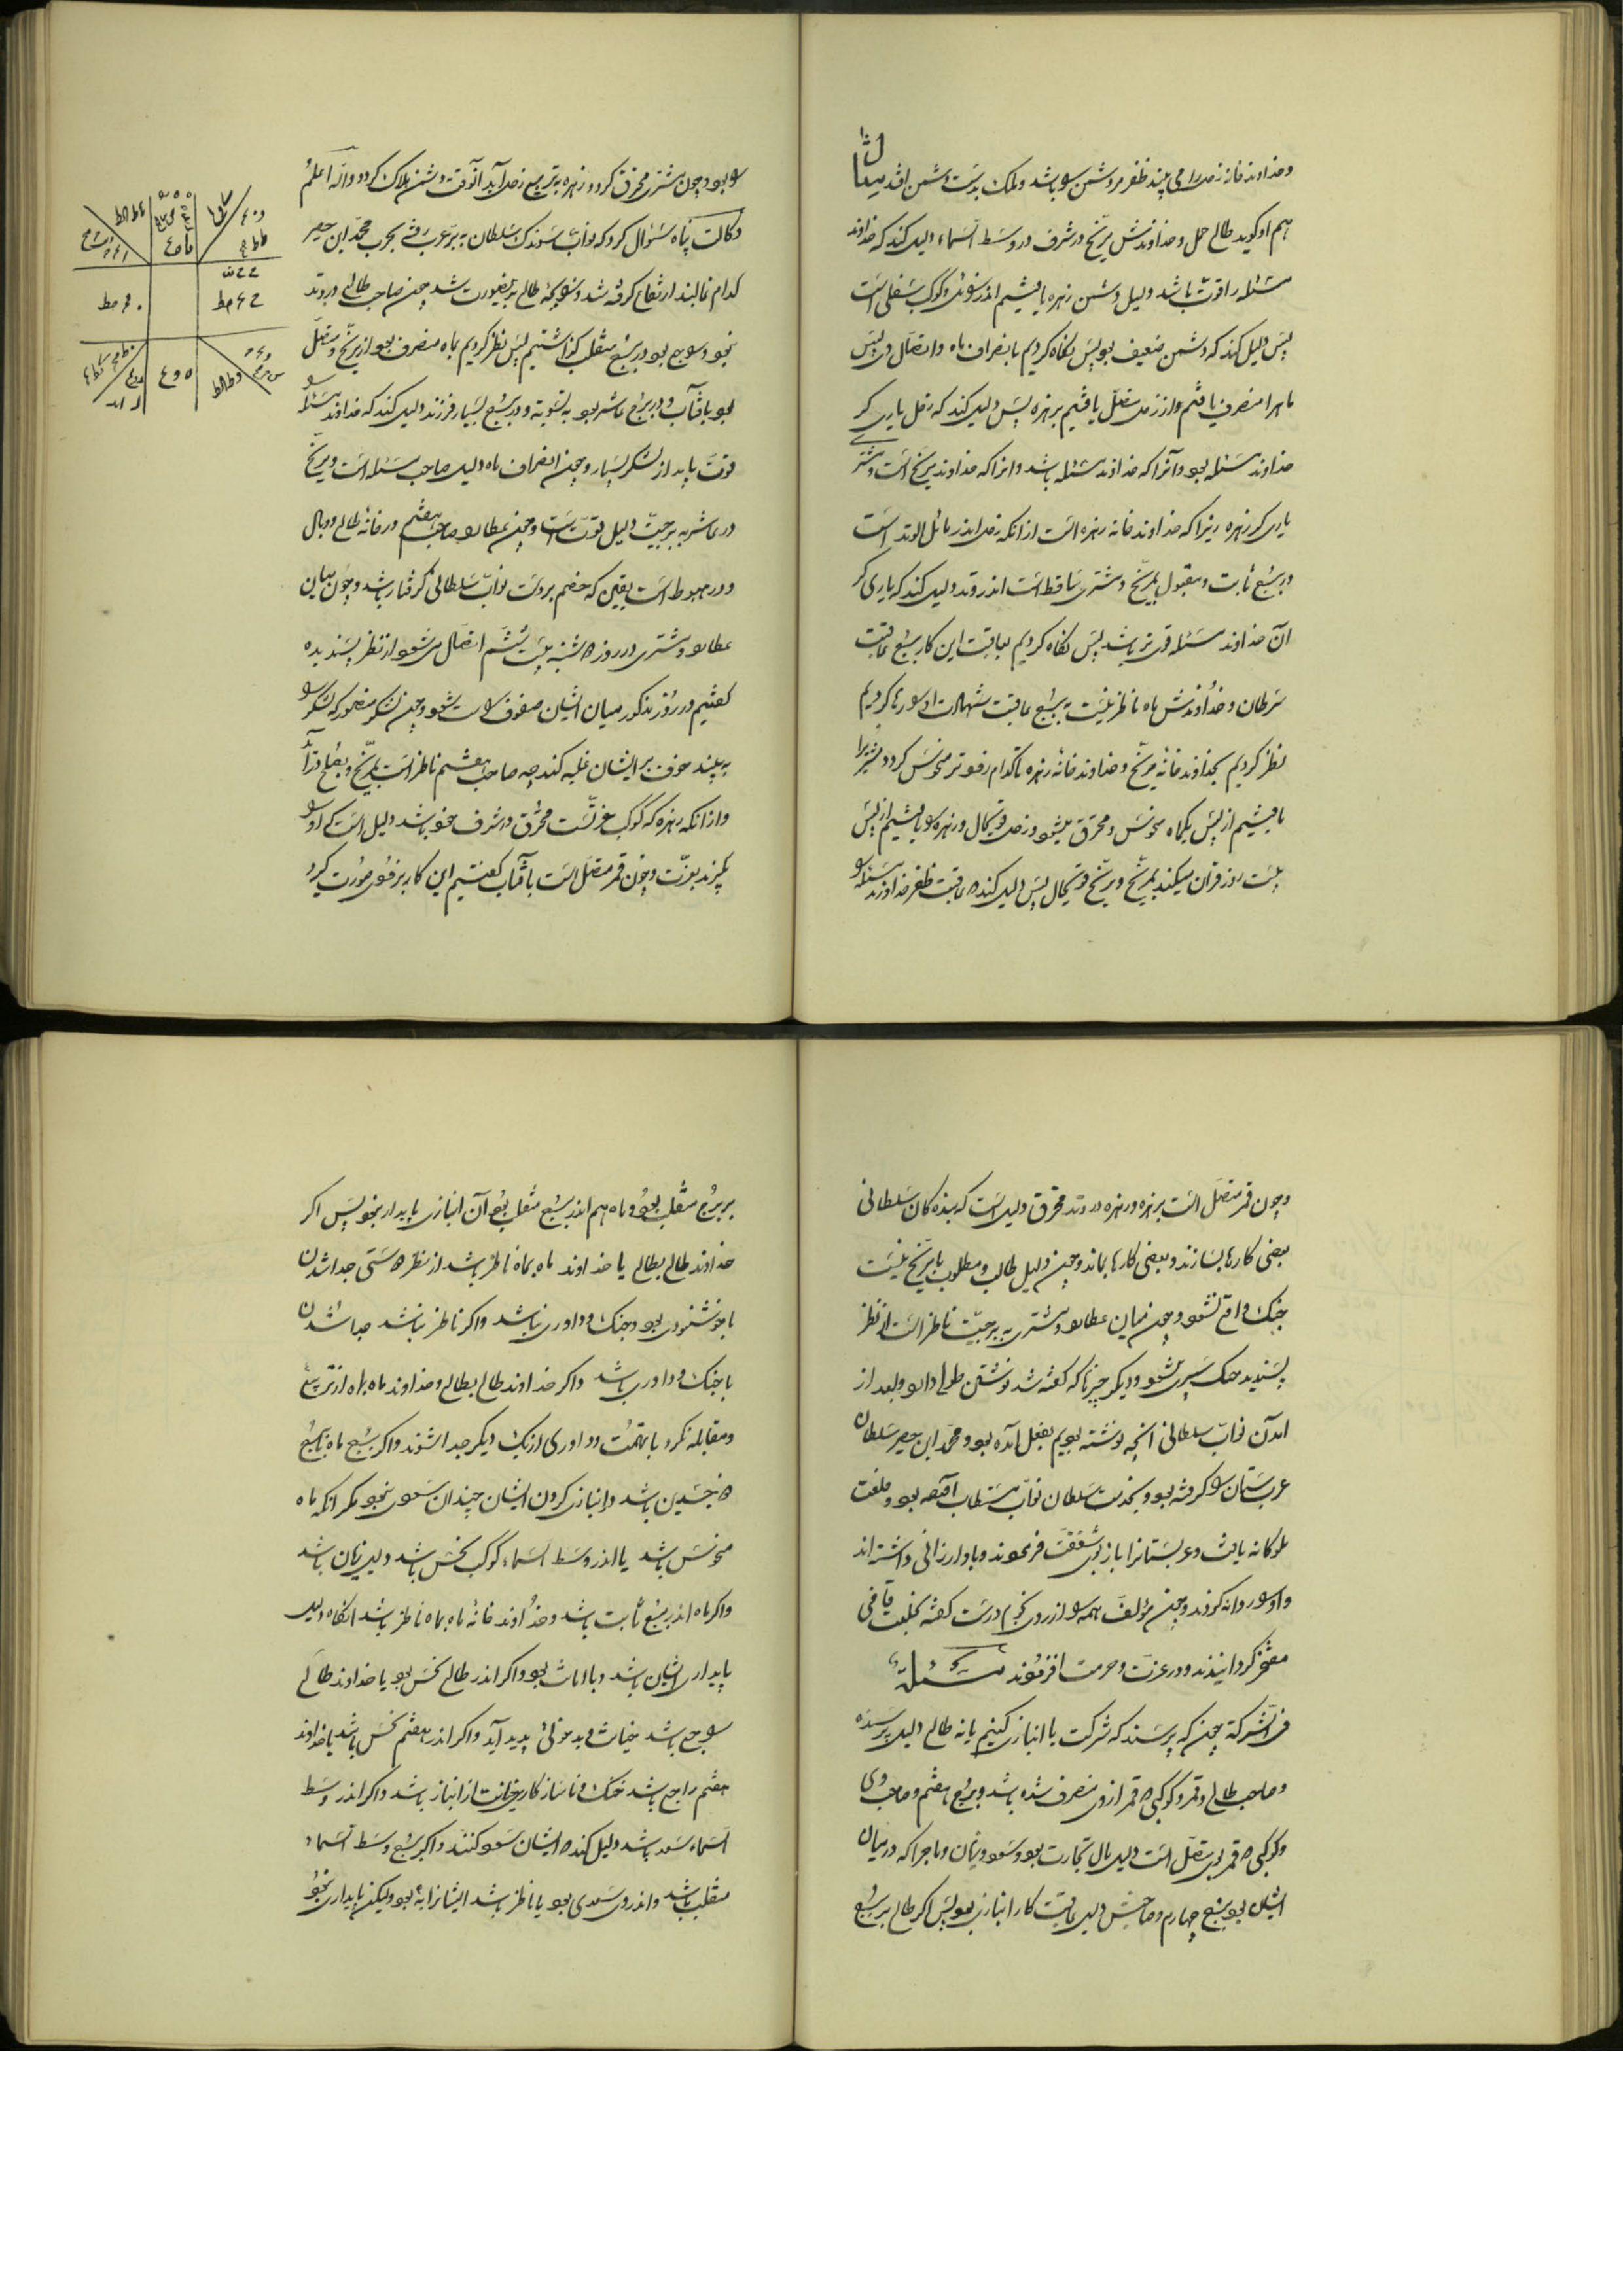 وخداوند خانه زحل را می بیند ظفر مر دشمن را باشد و ملک بدست دشمن افتد مثال
هم او گوید طالع حمل و خداوندش مریخ در شرف در وسط السماء دلیل کند که خداوند
مسئله را قوت باشد و لیل دشمن زهره یافتیم اندر و کوکب سفلی است
پس دلیل کند که دشمن ضعیف بود پس نگاه کردیم بانصراف ماه و اتصال وی پس
ماه را منصرف یافتیم و از زحل متصل یافتیم بزهره پس دلیل کند که زحل یاری کر
خداوند مسئله بود و آنرا که خداوند مسئله باشد و انرا که خداوند مریخ است و مشتری
یاری کر زهره زیرا که خداوند خانه زهره است از انکه زحل اندر مائل الوتد است
و برج ثابت و مقبول بمریخ و مشتری ساقط است اندر وتد دلیل کند که یاری کر
آن خداوند مسئله قوی تر باشد پس نگاه کردیم بعاقبت این کار برج عاقبت
سرطان و خداوندش ماه ناظر نیست به برج عاقبت شهادت او را رها کردیم
نظر کردیم بخداوند خانه مریخ و خداوند خانه زهره تا کدام زودتر منحوس کردد مشتری را
یافتیم از پس یکماه منحوس و محترق میشود و زحل قوی حال و زهره را یافتیم از پس
بیست روز قران میکند بمریخ و مریخ قوی حال پس دلیل کند که عاقبت ظفر خداوند مسئله
را بود و چون مشتری محترق کردد و زهره به تربیع زحل آید آنوقت دشمن هلاک کردد والله اعلم
وکالت پناه سئوال کرد که نواب سلطان به بر عرب رفته بحرب محمد ابن
کدام غالبند ارتفاع کرفته شد طالع بدینصورت شد چون صاحب طالع در وتد
بود و برج منقلب کذاشتیم پس نظر کردیم بماه منصرف بود از مریخ و متصل
بود بافتاب و در برج عاشر بود به تسویه و در برج بسیار فرزند دلیل کند که خداوند مسئله را
قوت باید از لشکر بسیار و چون انصراف ماه دلیل صاحب مسئله است و مریخ
در عاشر به برجیت دلیل قوت است و چون عطارد صاحب هفتم در خانه طالع و وبال
و در هبوط است یقین که خصم بر دست نواب سلطانی کرفتار باشد و چون میان
عطارد و مشتری در روز شنبه بیست ششم اتصال می شود از نظر پسندیده
کفتیم در روز مذکور میان ایشان صفوف راست شود و چون لشکر منصور که لشکر را
به بیند خوف بر ایشان غلبه کند چه صاحب هشتم ناظر است بمریخ و بطالع
و از انکه زهره که کوکب عزتست محترق در شرف خود باشد دلیل است که او را
بکیرند بعزت و چون قمر متصل است بافتاب کفتیم این کار بر فور صورت کیرد
وچون قمر متصل است بزهره و زهره در وتد محترق دلیل است که بنده کان سلطانی
بعضی کارها بسازند و بعضی کارها بماند و چون دلیل طالب و مطلوب با مریخ نیست
جنک واقع نشود و چون میان عطارد و مشتری به برجیت ناظر است از نظر
پسندیده جنک سپری شود و دیکر چیزها که کفته شد نوشتن طولی دارد و بعد از
امدن نواب سلطانی انچه نوشته بودیم بفعل آمده بود و محمد ابن سلطان
عربستان را کرفته بود و بخدمت سلطان نواب مستطاب آمده بود و خلعت
ملوکانه یافت و عربستانرا باز بوی شفقت فرمودند و باو ارزانی داشته اند
و او را روانه کردند و چون مؤلف همه را از روی نجوم درست کفته بخلعت قاضی
مفتخر کردانیدند و در عزت و حرمت افزودند مسئله
فی الشرکة چون که پرسند که شرکت یا انبازی کنیم یا نه طالع دلیل پرسنده
و صاحب طالع و قمر و کوکبی که قمر از وی منصرف شده باشد و برج هفتم و صاحب وی
و کوکبی که قمر بوی متصل است دلیل مال تجارت بود و سود و زیان و ماجرا که در میان
ایشان بود و برج چهارم و صاحبش دلیل عاقبت کار انبازی بود پس اکر طالع برج
بر برج منقلب بود و ماه هم اندر برج منقلب بود آن انبازی پایدار نبود پس اکر
خداوند طالع بطالع یا خداوند ماه بماه ناظر باشد از نظر دوستی جدا شدن
باخوشنودی بود و جنک و داوری نباشد و اکر ناظر نباشد جدا شدن
باجنک و داوری باشد و اکر خداوند طالع بطالع و خداوند ماه بماه از تربیع
و مقابله نکرد با تهمت و داوری از یک دیکر جدا شوند و اکر برج ماه برج
ذو جسدین باشد و انبازی کردن ایشان چندان سود نبود مکر انکه ماه
منحوس باشد یا اندر وسط السماء کوکب نحس باشد دلیل زیان باشد
واکر ماه اندر برج ثابت باشد و خداوند خانه ماه بماه ناظر باشد انکاه دلیل
پایداری ایشان باشد و با امانت بود و اکر اندر طالع نحس بود یا خداوند طالع
راجع باشد خیانت و بدخوئی پدید آید و اکر اندر هفتم نحس باشد یا خداوند
هفتم راجع باشد جنک و ناسازکاری خیانت از انباز باشد و اکر اندر وسط
السماء سعد باشد دلیل کند که ایشان سود کنند و اکر برج وسط السماء
منقلب باشد و اندر وی سعدی بود یا ناظر باشد ایشانرا به بود ولیکن پایداری نبود